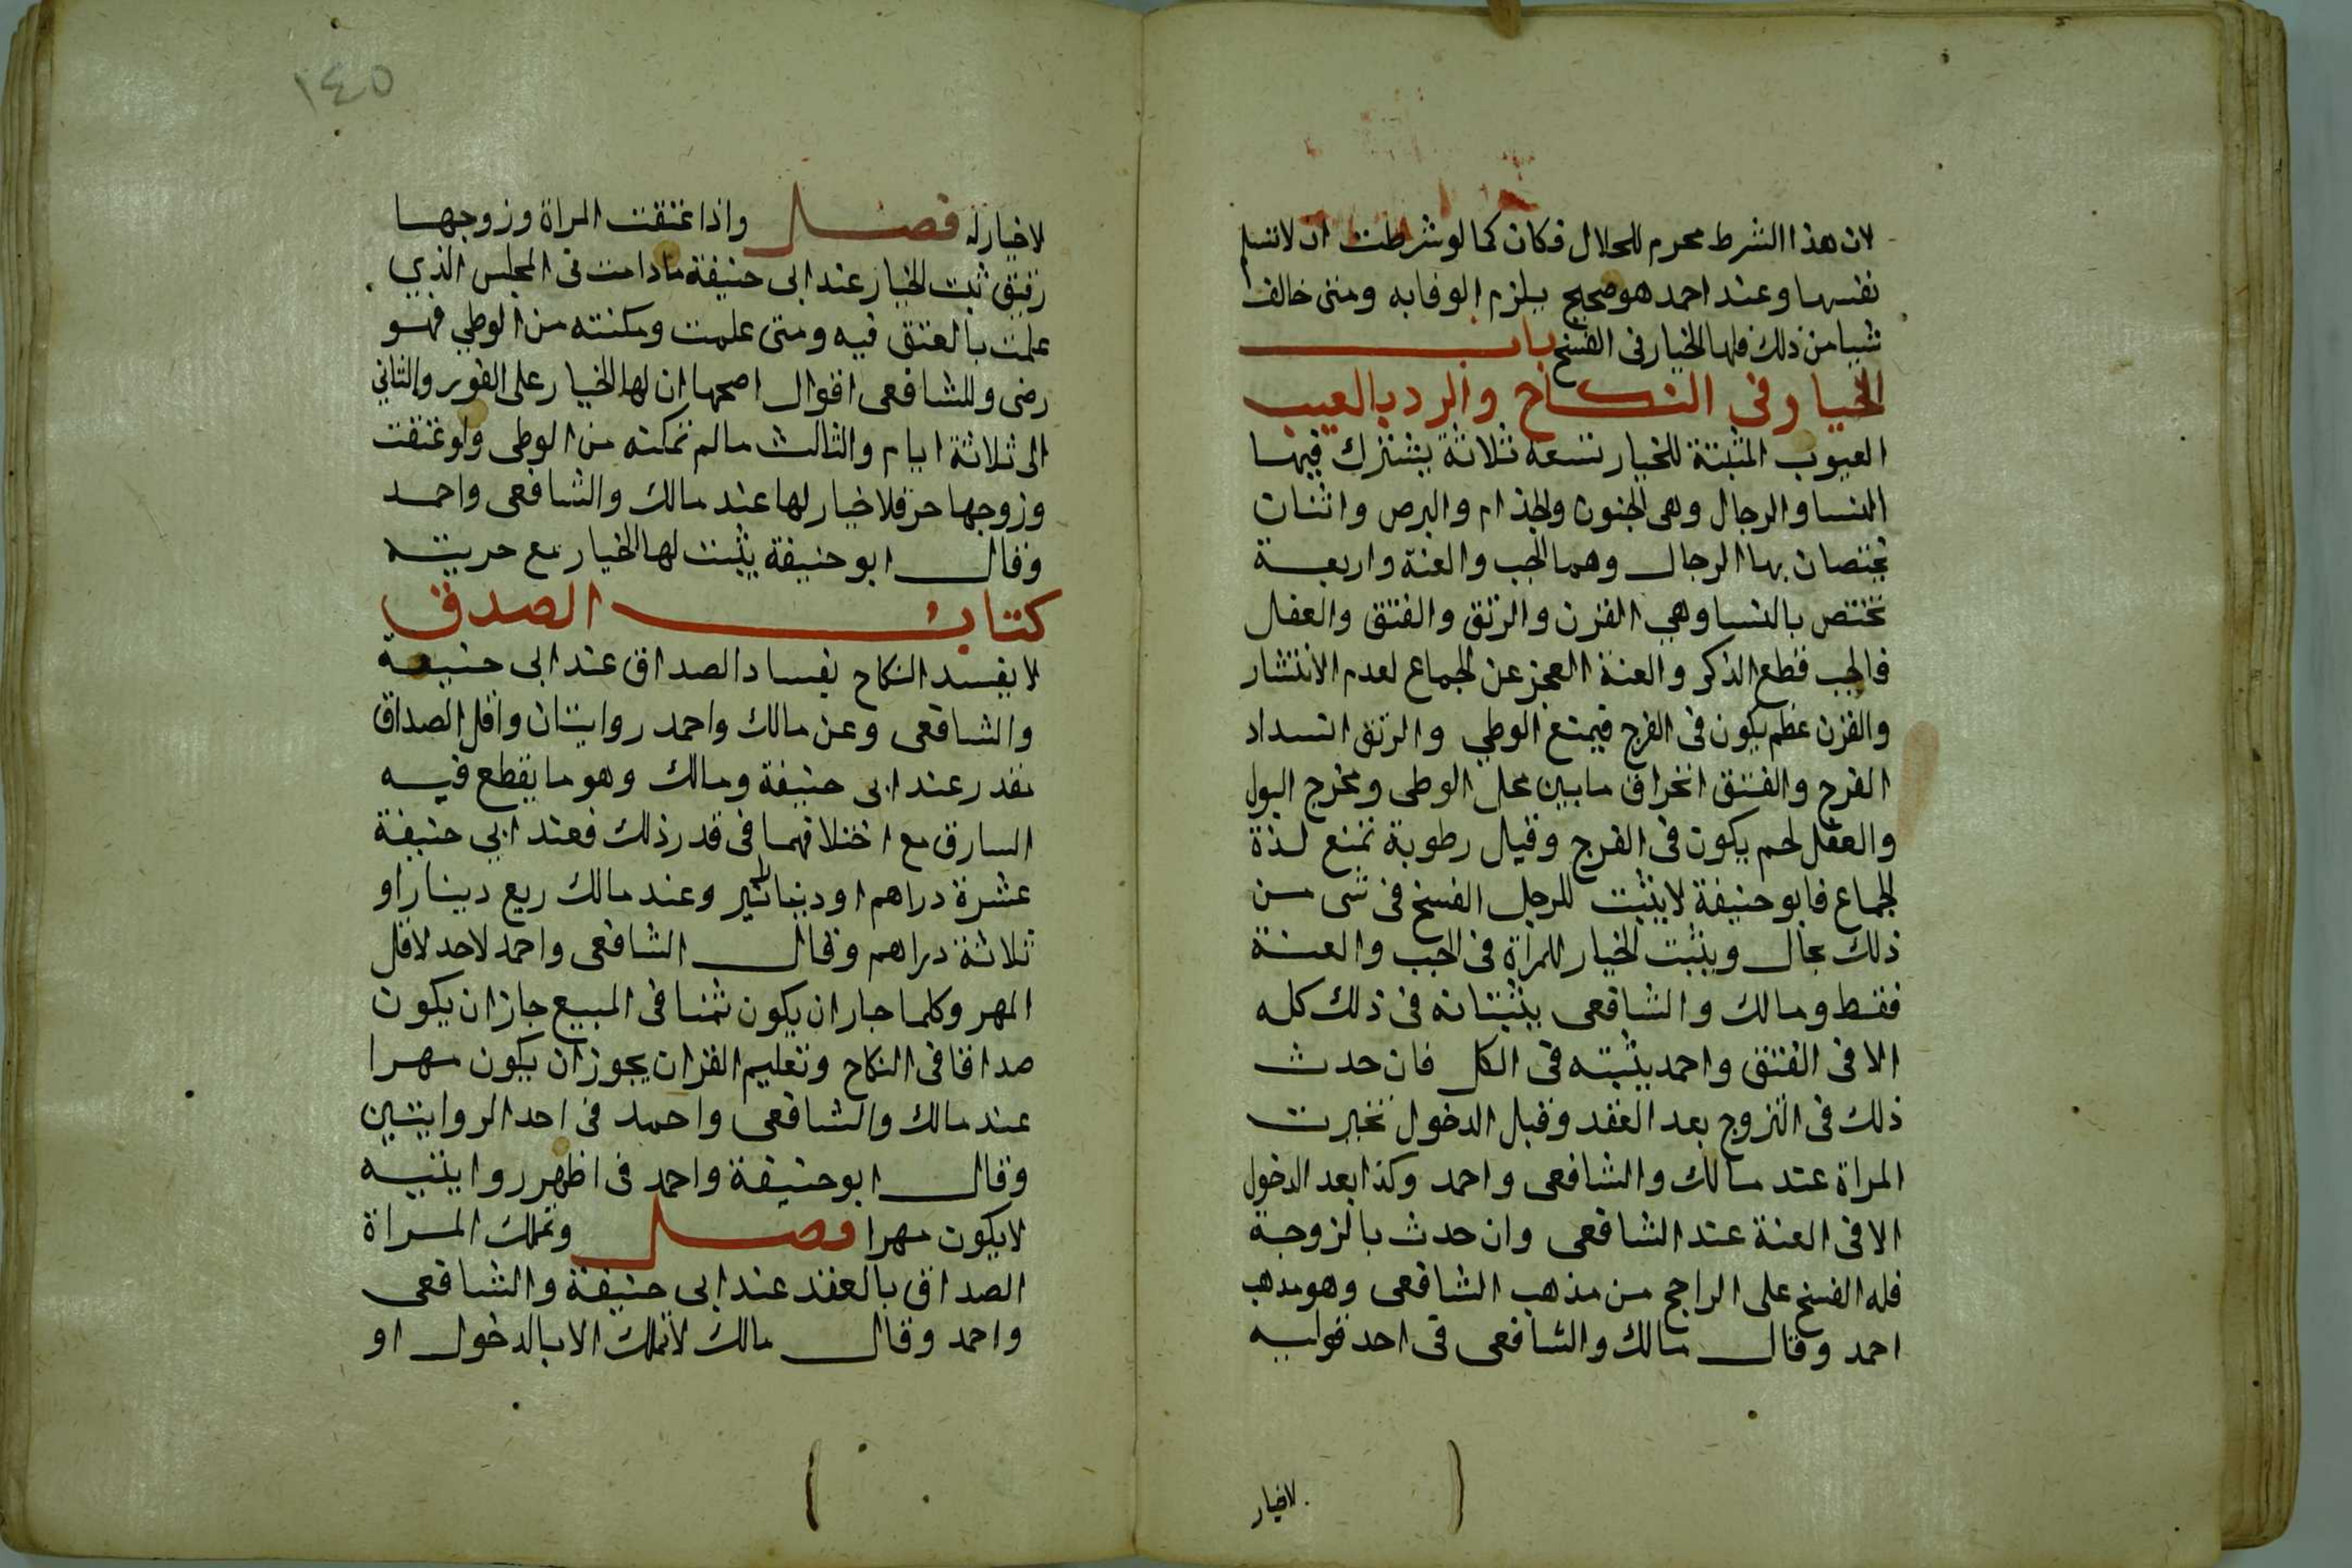 لان هذا الشرط محرم للحلال فكان كما لو شرطت ان لا تسلم
نفسها وعند احمد هو صحيح يلزم الوفا به ومتى خالف
شيا من ذلك فلها الخيار فى الفسخ باب
الخيار في النكاح والرد بالعيب
العيوب المثبتة للخيار تسعة ثلاثة يشترك فيها
النسا والرجال وهى الجنون والجذام والبرص واثنان
يختصان بها الرجال وهما الجب والعنة واربعة
تختص بالنسا وهي القرن والرتق والفتق والعفل
فالجب قطع الذكر والعنة العجز عن الجماع لعدم الانتشار
والقرن عظم يكون فى الفرج فيمنع الوطي والرتق انسداد
الفرج والفتق انخراق ما بين محل الوطى ومخرج البول
والعفل لحم يكون فى الفرج وقيل رطوبة تمنع لذة
الجماع فابو حنيفة لا يثبت للرجل الفسخ فى شى من
ذلك بحال ويثبت الخيار للمراة فى الجب والعنة
فقط ومالك والشافعى يثبتانه فى ذلك كله
الا فى الفتق واحمد يثبته فى الكل فان حدث
ذلك فى الزوج بعد العقد وقبل الدخول تخيرت
المراة عند مالك والشافعى واحمد وكذا بعد الدخول
الا فى العنة عند الشافعى وان حدث بالزوجة
فله الفسخ على الراجح من مذهب الشافعى وهو مذهب
احمد وقال مالك والشافعى فى احد قوليه
لاخيار
١٤٥
لا خيار له فصل واذا عتقت المراة وزوجها
رقيق ثبت الخيار عند ابى حنيفة ما دامت فى المجلس الذي
علمت بالعتق فيه ومتى علمت ومكنته من الوطي فهو
رضى وللشافعى اقوال اصحها ان لها الخيار على الفور والثاني
الى ثلاثة ايام والثالث ما لم تمكنه من الوطى ولو عتقت
وزوجها حر فلا خيار لها عند مالك والشافعى واحمد
وقال ابو حنيفة يثبت لها الخيار مع حريته
كتاب الصدق
لا يفسد النكاح بفساد الصداق عند ابى حنيفة
والشافعى وعن مالك واحمد روايتان واقل الصداق
مقدر عند ابى حنيفة ومالك وهو ما يقطع فيه
السارق مع اختلافهما فى قدر ذلك فعند ابي حنيفة
عشرة دراهم او دينار وعند مالك ربع دينار او
ثلاثة دراهم وقال الشافعى واحمد لا حد لاقل
المهر وكلما جاز ان يكون ثمنا فى المبيع جاز ان يكون
صداقا فى النكاح وتعليم القران يجوز ان يكون مهرا
عند مالك والشافعى واحمد فى احد الروايتين
وقال ابو حنيفة واحمد فى اظهر روايتيه
لا يكون مهرا فصل وتملك المراة
الصداق بالعقد عند ابى حنيفة والشافعى
واحمد وقال مالك لا تملك الا بالدخول او